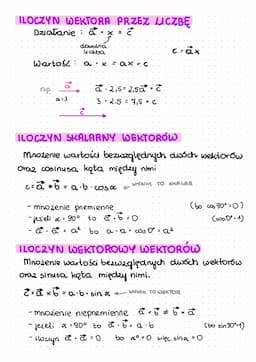 ILOCZYN WEKTORA PRZEZ LICZBĘ
Działanie : a⃗ · x = c⃗
dowolna liczba
c⃗ = a⃗x
Wartość : a · x = ax = c
np. a⃗ a⃗ · 2,5 = 2,5a⃗ = c⃗
a=3 3 · 2.5 = 7,5 = c
c⃗
ILOCZYN SKALARNY WEKTORÓW
Mnożenie wartości bezwzględnych dwóch wektorów
oraz cosinusa kąta między nimi
c = a⃗ * b⃗ = a · b · cos α ← WYNIK TO SKALAR
- mnożenie przemienne (bo cos 90° = 0)
- jeżeli α = 90° to a⃗ · b⃗ = 0 (cos 0° = 1)
- a⃗ · a⃗ = a² bo a · a · cos 0° = a²
ILOCZYN WEKTOROWY WEKTORÓW
Mnożenie wartości bezwzględnych dwóch wektorów
oraz sinusa kąta między nimi.
c⃗ = a⃗ x b⃗ = a · b · sin α ← WYNIK TO WEKTOR
- mnożenie nieprzemienne a⃗ * b⃗ ≠ b⃗ * a⃗
- jeżeli α = 90° to a⃗ · b⃗ = a · b (bo sin 90° = 1)
- iloczyn a⃗ · a⃗ = 0 bo α = 0 więc sin α = 0